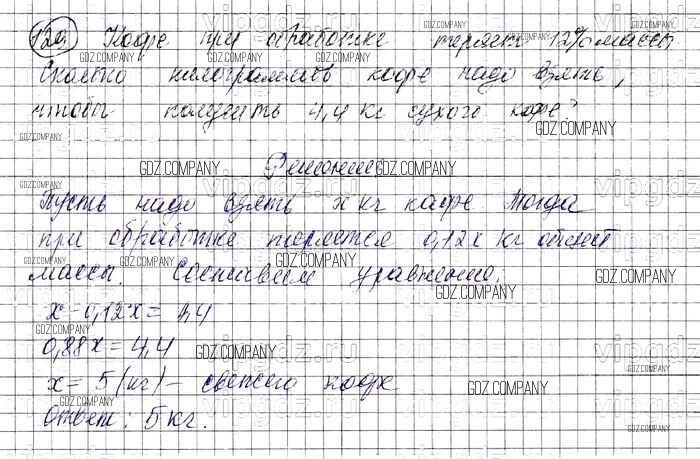 129. Кофе при обработке теряет 12% массы
Сколько килограммов кофе надо взять,
чтобы получить 4,4 кг сухого кофе?
Решение
Пусть надо взять x кг кофе Тогда
при обработке теряется 0,12x кг общей
массы. Составим уравнение.
x - 0,12x = 4,4
0,88x = 4,4
x = 5 (кг) - свежего кофе
Ответ: 5 кг.
GDZ.COMPANY
vipgdz.ru